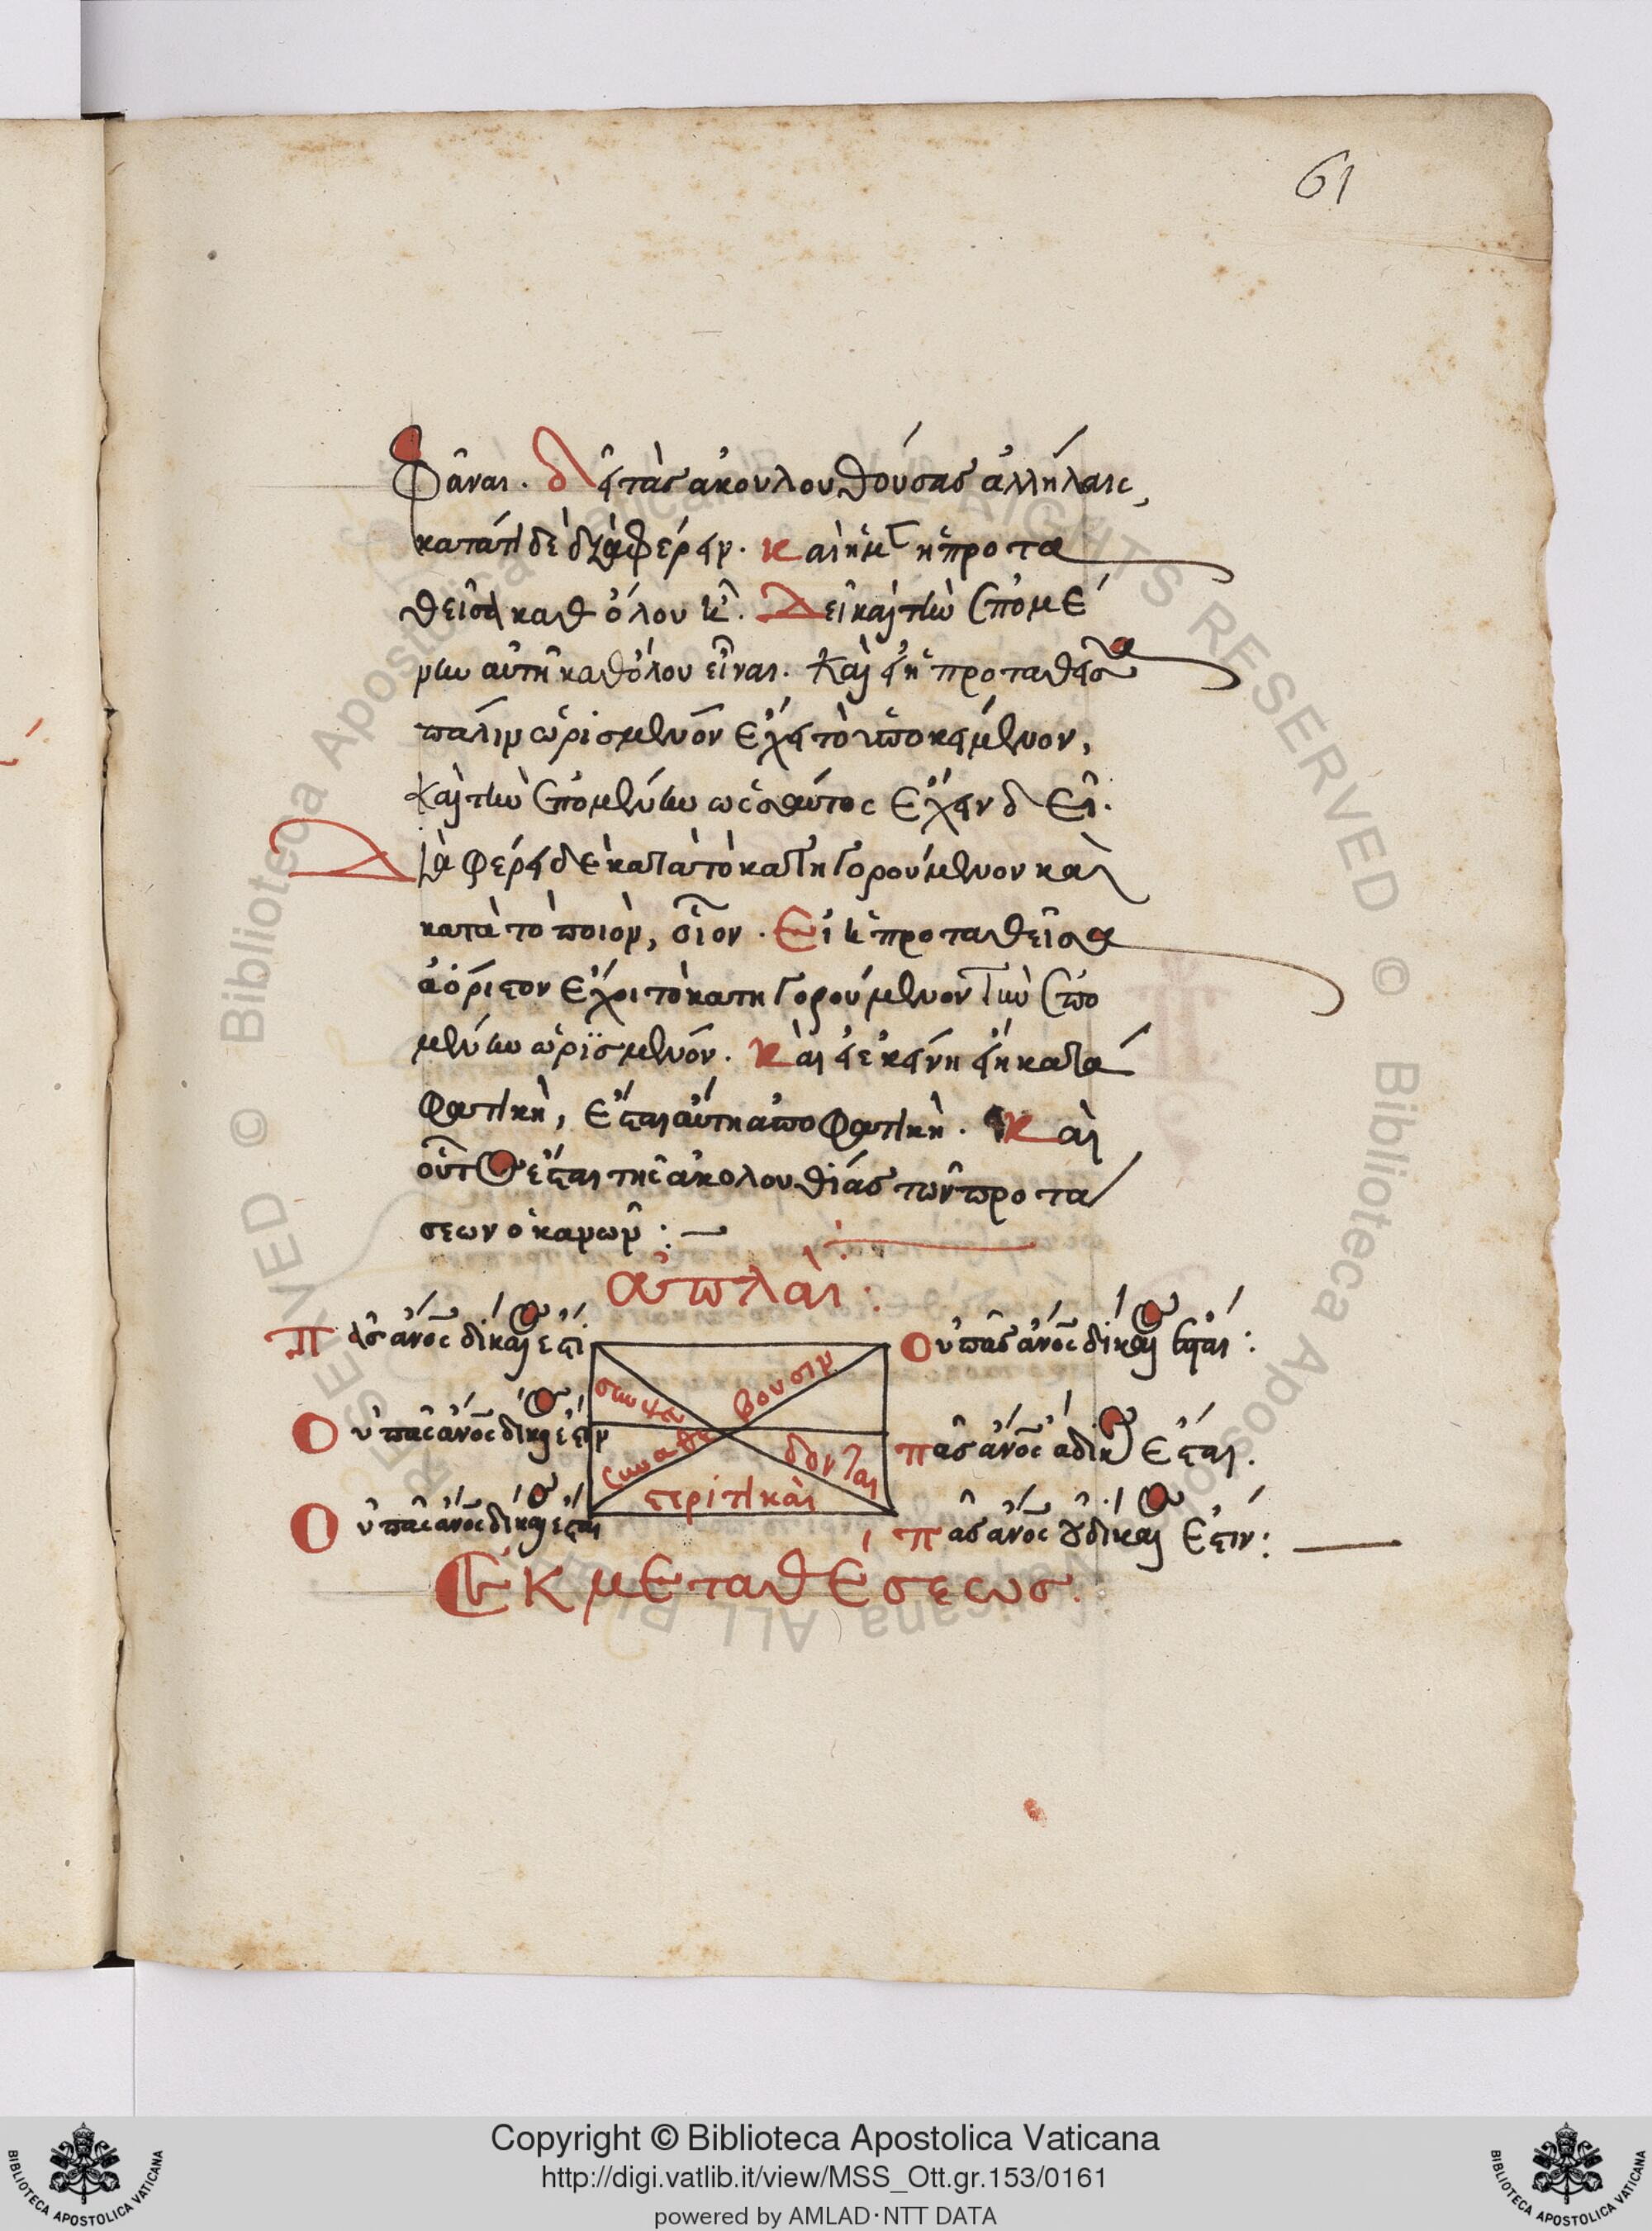 61
φᾶναι. δεῖ τὰς ἀκουλουθούσας ἀλλήλαις,
κατάτι δὲ διαφέρειν. καὶ ἡ μ̈ ἡ προτα
θεῖσα καθόλου ἦ. Δεῖ καὶ τὴν ἑπομέ
νην αὐτῆ καθόλου εἶναι. καὶ εἰ ἡ προταθεῖσα
πάλιν ὡρισμένον ἔχει τὸ ὑποκείμενον,
καὶ τὴν ἑπομένην ὡσαύτος ἔχειν δεῖ.
Διαφέρει δὲ κατὰ τὸ κατηγορούμενον καὶ
κατὰ τὸ ποιὸν, οἷον. Εἰ ἡ προταθεῖσα
ἀόριστον ἔχοι τὸ κατηγορούμενον τὴν ἑπο
μένην ὡρϊσμένον. καὶ εἰ ἐκείνη εἴη κατα
φατικὴ, ἔσται αὕτη ἀποφατικὴ. καὶ
οὗτος ἔσται τῆς ἀκολουθίας τῶν προτά
σεων ὁ κανών :
ἁπλαῖ :
Πᾶς ἄνος δίκαιος ἐστί
Οὐ πᾶς ἄνος δίκαιος ἔσται :
συμψευ
βουσιν
Οὐ πᾶς ἄνος δίκαιος ἐστιν
συναθε
δονται
πᾶς ἄνος ἄδικος ἔσται.
στερητικαὶ
Οὐ πᾶς ἄνος δίκαιος ἔσται
πᾶς ἄνος οὐ δίκαιος ἐστιν :
Ἐκ μεταθέσεως :
Copyright © Biblioteca Apostolica Vaticana
http://digi.vatlib.it/view/MSS_Ott.gr.153/0161
powered by AMLAD·NTT DATA
BIBLIOTECA APOSTOLICA VATICANA
BIBLIOTECA APOSTOLICA VATICANA